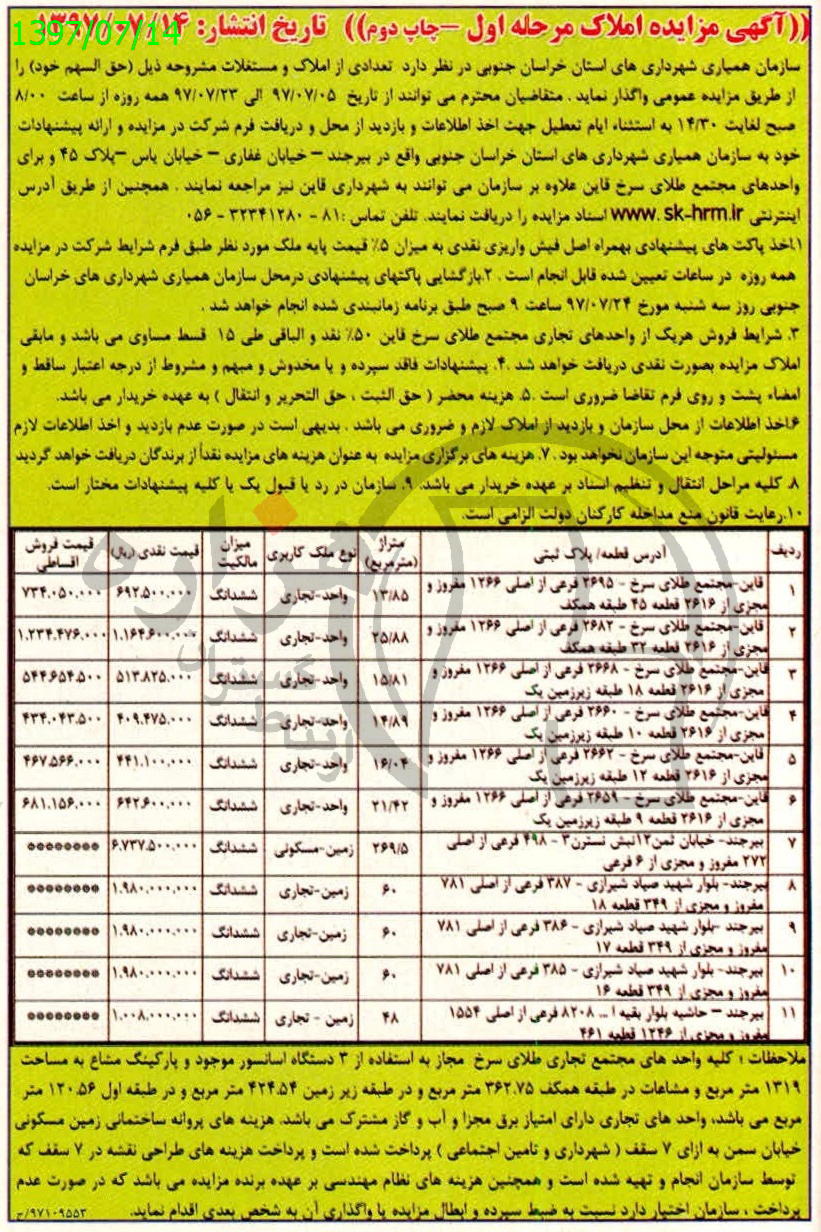 ((آگهی مزایده املاک مرحله اول –چاپ دوم)) تاریخ انتشار: ۱۳۹۷/۰۷/۱۴
1397/07/14
سازمان همیاری شهرداری های استان خراسان جنوبی در نظر دارد تعدادی از املاک و مستغلات مشروحه ذیل (حق السهم خود) را
از طریق مزایده عمومی واگذار نماید . متقاضیان محترم می توانند از تاریخ ۹۷/۰۷/۰۵ الی ۹۷/۰۷/۲۳ همه روزه از ساعت ۸/۰۰
صبح لغایت ۱۴/۳۰ به استثناء ایام تعطیل جهت اخذ اطلاعات و بازدید از محل و دریافت فرم شرکت در مزایده و ارائه پیشنهادات
خود به سازمان همیاری شهرداری های استان خراسان جنوبی واقع در بیرجند – خیابان غفاری – خیابان یاس –پلاک ۴۵ و برای
واحدهای مجتمع طلای سرخ قاین علاوه بر سازمان می توانند به شهرداری قاین نیز مراجعه نمایند . همچنین از طریق آدرس
اینترنتی www. sk-hrm.ir اسناد مزایده را دریافت نمایند. تلفن تماس :۸۱ - ۳۲۳۴۱۲۸۰ - ۰۵۶
۱.اخذ پاکت های پیشنهادی بهمراه اصل فیش واریزی نقدی به میزان ۵٪ قیمت پایه ملک مورد نظر طبق فرم شرایط شرکت در مزایده
همه روزه در ساعات تعیین شده قابل انجام است . ۲.بازگشایی پاکتهای پیشنهادی درمحل سازمان همیاری شهرداری های خراسان
جنوبی روز سه شنبه مورخ ۹۷/۰۷/۲۴ ساعت ۹ صبح طبق برنامه زمانبندی شده انجام خواهد شد .
۳. شرایط فروش هریک از واحدهای تجاری مجتمع طلای سرخ قاین ۵۰٪ نقد و الباقی طی ۱۵ قسط مساوی می باشد و مابقی
املاک مزایده بصورت نقدی دریافت خواهد شد .۴. پیشنهادات فاقد سپرده و یا مخدوش و مبهم و مشروط از درجه اعتبار ساقط و
امضاء پشت و روی فرم تقاضا ضروری است .۵. هزینه محضر ( حق الثبت ، حق التحریر و انتقال ) به عهده خریدار می باشد.
۶.اخذ اطلاعات از محل سازمان و بازدید از املاک لازم و ضروری می باشد . بدیهی است در صورت عدم بازدید و اخذ اطلاعات لازم
مسئولیتی متوجه این سازمان نخواهد بود . ۷. هزینه های برگزاری مزایده به عنوان هزینه های مزایده نقداً از برندگان دریافت خواهد گردید
۸. کلیه مراحل انتقال و تنظیم اسناد بر عهده خریدار می باشد. ۹. سازمان در رد یا قبول یک یا کلیه پیشنهادات مختار است.
۱۰.رعایت قانون منع مداخله کارکنان دولت الزامی است.
ردیف آدرس قطعه/ پلاک ثبتی متراژ (مترمربع) نوع ملک کاربری میزان مالکیت قیمت نقدی (ریال) قیمت فروش اقساطی
۱ قاین-مجتمع طلای سرخ - ۲۶۹۵ فرعی از اصلی ۱۲۶۶ مفروز و ۱۳/۸۵ واحد-تجاری ششدانگ ۶۹۲.۵۰۰.۰۰۰ ۷۳۴.۰۵۰.۰۰۰
مجزی از ۲۶۱۶ قطعه ۴۵ طبقه همکف
۲ قاین-مجتمع طلای سرخ - ۲۶۸۲ فرعی از اصلی ۱۲۶۶ مفروز و ۲۵/۸۸ واحد-تجاری ششدانگ ۱.۱۶۴.۶۰۰.۰۰۰ ۱.۲۳۴.۴۷۶.۰۰۰
مجزی از ۲۶۱۶ قطعه ۳۲ طبقه همکف
۳ قاین-مجتمع طلای سرخ - ۲۶۶۸ فرعی از اصلی ۱۲۶۶ مفروز و ۱۵/۸۱ واحد-تجاری ششدانگ ۵۱۳.۸۲۵.۰۰۰ ۵۴۴.۶۵۴.۵۰۰
مجزی از ۲۶۱۶ قطعه ۱۸ طبقه زیرزمین یک
۴ قاین-مجتمع طلای سرخ - ۲۶۶۰ فرعی از اصلی ۱۲۶۶ مفروز و ۱۴/۸۹ واحد-تجاری ششدانگ ۴۰۹.۴۷۵.۰۰۰ ۴۳۴.۰۴۳.۵۰۰
مجزی از ۲۶۱۶ قطعه ۱۰ طبقه زیرزمین یک
۵ قاین-مجتمع طلای سرخ - ۲۶۶۲ فرعی از اصلی ۱۲۶۶ مفروز و ۱۶/۰۴ واحد-تجاری ششدانگ ۴۴۱.۱۰۰.۰۰۰ ۴۶۷.۵۶۶.۰۰۰
مجزی از ۲۶۱۶ قطعه ۱۲ طبقه زیرزمین یک
۶ قاین-مجتمع طلای سرخ - ۲۶۵۹ فرعی از اصلی ۱۲۶۶ مفروز و ۲۱/۴۲ واحد-تجاری ششدانگ ۶۴۲.۶۰۰.۰۰۰ ۶۸۱.۱۵۶.۰۰۰
مجزی از ۲۶۱۶ قطعه ۹ طبقه زیرزمین یک
۷ بیرجند- خیابان ثمن۱۲نبش نسترن۳ - ۴۹۸ فرعی از اصلی ۲۶۹/۵ زمین-مسکونی ششدانگ ۶.۷۳۷.۵۰۰.۰۰۰ ********
۲۷۲ مفروز و مجزی از ۶ فرعی
۸ بیرجند- بلوار شهید صیاد شیرازی - ۳۸۷ فرعی از اصلی ۷۸۱ ۶۰ زمین-تجاری ششدانگ ۱.۹۸۰.۰۰۰.۰۰۰ ********
مفروز و مجزی از ۳۴۹ قطعه ۱۸
۹ بیرجند -بلوار شهید صیاد شیرازی - ۳۸۶ فرعی از اصلی ۷۸۱ ۶۰ زمین-تجاری ششدانگ ۱.۹۸۰.۰۰۰.۰۰۰ ********
مفروز و مجزی از ۳۴۹ قطعه ۱۷
۱۰ بیرجند- بلوار شهید صیاد شیرازی - ۳۸۵ فرعی از اصلی ۷۸۱ ۶۰ زمین-تجاری ششدانگ ۱.۹۸۰.۰۰۰.۰۰۰ ********
مفروز و مجزی از ۳۴۹ قطعه ۱۶
۱۱ بیرجند – حاشیه بلوار بقیه ا ... ۸۲۰۸ فرعی از اصلی ۱۵۵۴ ۴۸ زمین - تجاری ششدانگ ۱.۰۰۸.۰۰۰.۰۰۰ ********
مفروز و مجزی از ۱۲۴۶ قطعه ۴۶۱
ملاحظات : کلیه واحد های مجتمع تجاری طلای سرخ مجاز به استفاده از ۳ دستگاه اسانسور موجود و پارکینگ مشاع به مساحت
۱۳۱۹ متر مربع و مشاعات در طبقه همکف ۳۶۲.۷۵ متر مربع و در طبقه زیر زمین ۴۲۴.۵۴ متر مربع و در طبقه اول ۱۲۰.۵۶ متر
مربع می باشد، واحد های تجاری دارای امتیاز برق مجزا و آب و گاز مشترک می باشد. هزینه های پروانه ساختمانی زمین مسکونی
خیابان سمن به ازای ۷ سقف ( شهرداری و تامین اجتماعی ) پرداخت شده است و پرداخت هزینه های طراحی نقشه در ۷ سقف که
توسط سازمان انجام و تهیه شده است و همچنین هزینه های نظام مهندسی بر عهده برنده مزایده می باشد که در صورت عدم
پرداخت ، سازمان اختیار دارد نسبت به ضبط سپرده و ابطال مزایده یا واگذاری آن به شخص بعدی اقدام نماید.
۹۷۱۰۹۵۵۳/ح
هزاره